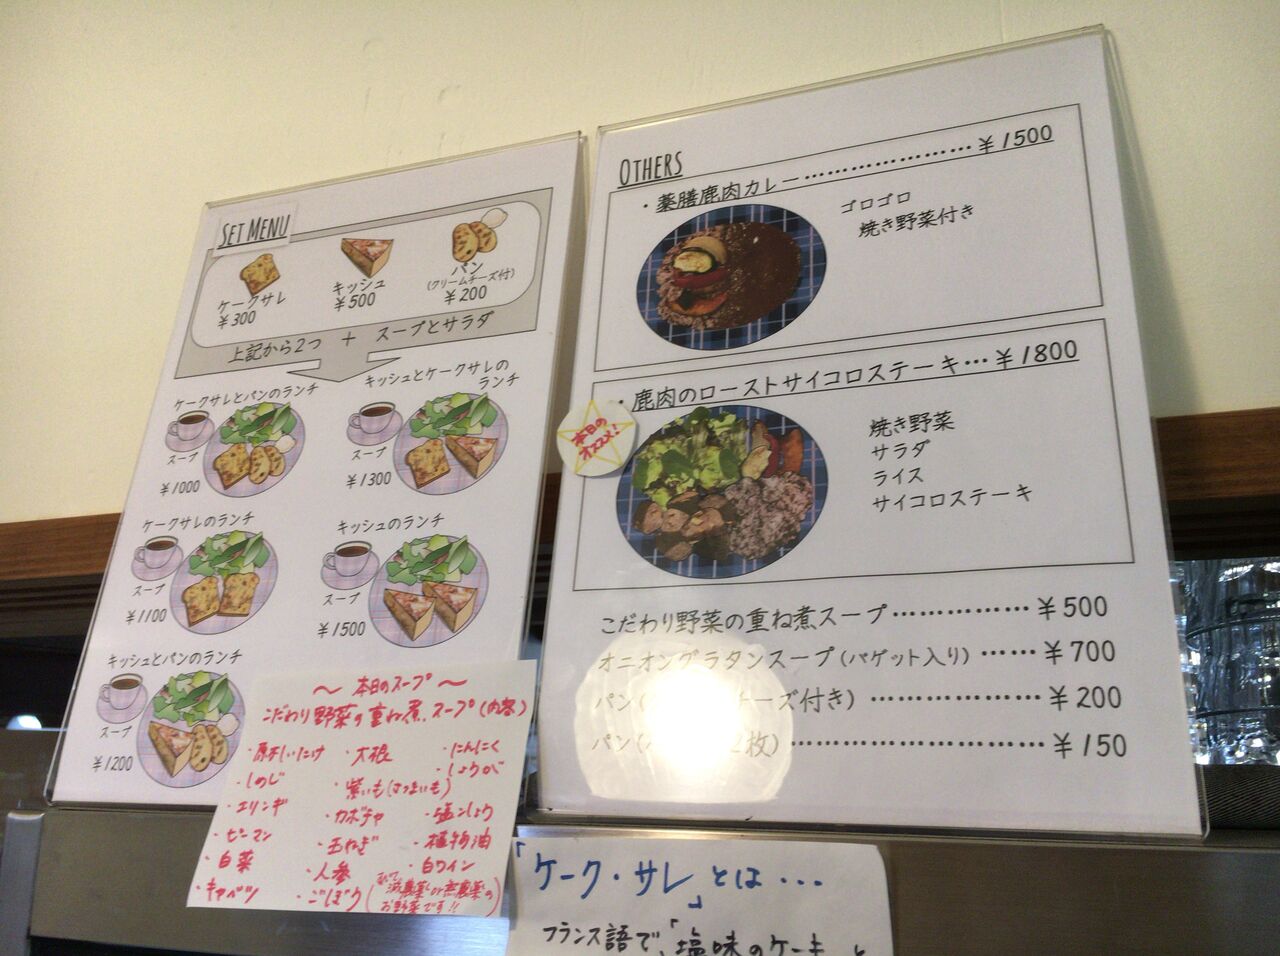 SET MENU
ケークサレ
¥300
キッシュ
¥500
パン
(クリームチーズ付)
¥200
上記から2つ + スープとサラダ
ケークサレとパンのランチ
スープ
¥1000
キッシュとケークサレの
ランチ
スープ
¥1300
ケークサレのランチ
スープ
¥1100
キッシュのランチ
スープ
¥1500
キッシュとパンのランチ
スープ
¥1200
〜 本日のスープ 〜
こだわり野菜の重ね煮スープ(内容)
・原木しいたけ
・しめじ
・エリンギ
・ピーマン
・白菜
・キャベツ
・大根
・紫いも(さつまいも)
・カボチャ
・玉ねぎ
・人参
・ごぼう
・にんにく
・しょうが
・塩こしょう
・植物油
・白ワイン
減農薬or無農薬の
お野菜です!!
OTHERS
・薬膳鹿肉カレー…………………… ¥1500
ゴロゴロ
焼き野菜付き
・鹿肉のローストサイコロステーキ… ¥1800
本日の
オススメ!
焼き野菜
サラダ
ライス
サイコロステーキ
こだわり野菜の重ね煮スープ…………… ¥500
オニオングラタンスープ(バゲット入り)…… ¥700
パン( チーズ付き)………………… ¥200
パン( 2枚)………………………… ¥150
「ケーク・サレ」とは・・・
フランス語で、「塩味のケーキ